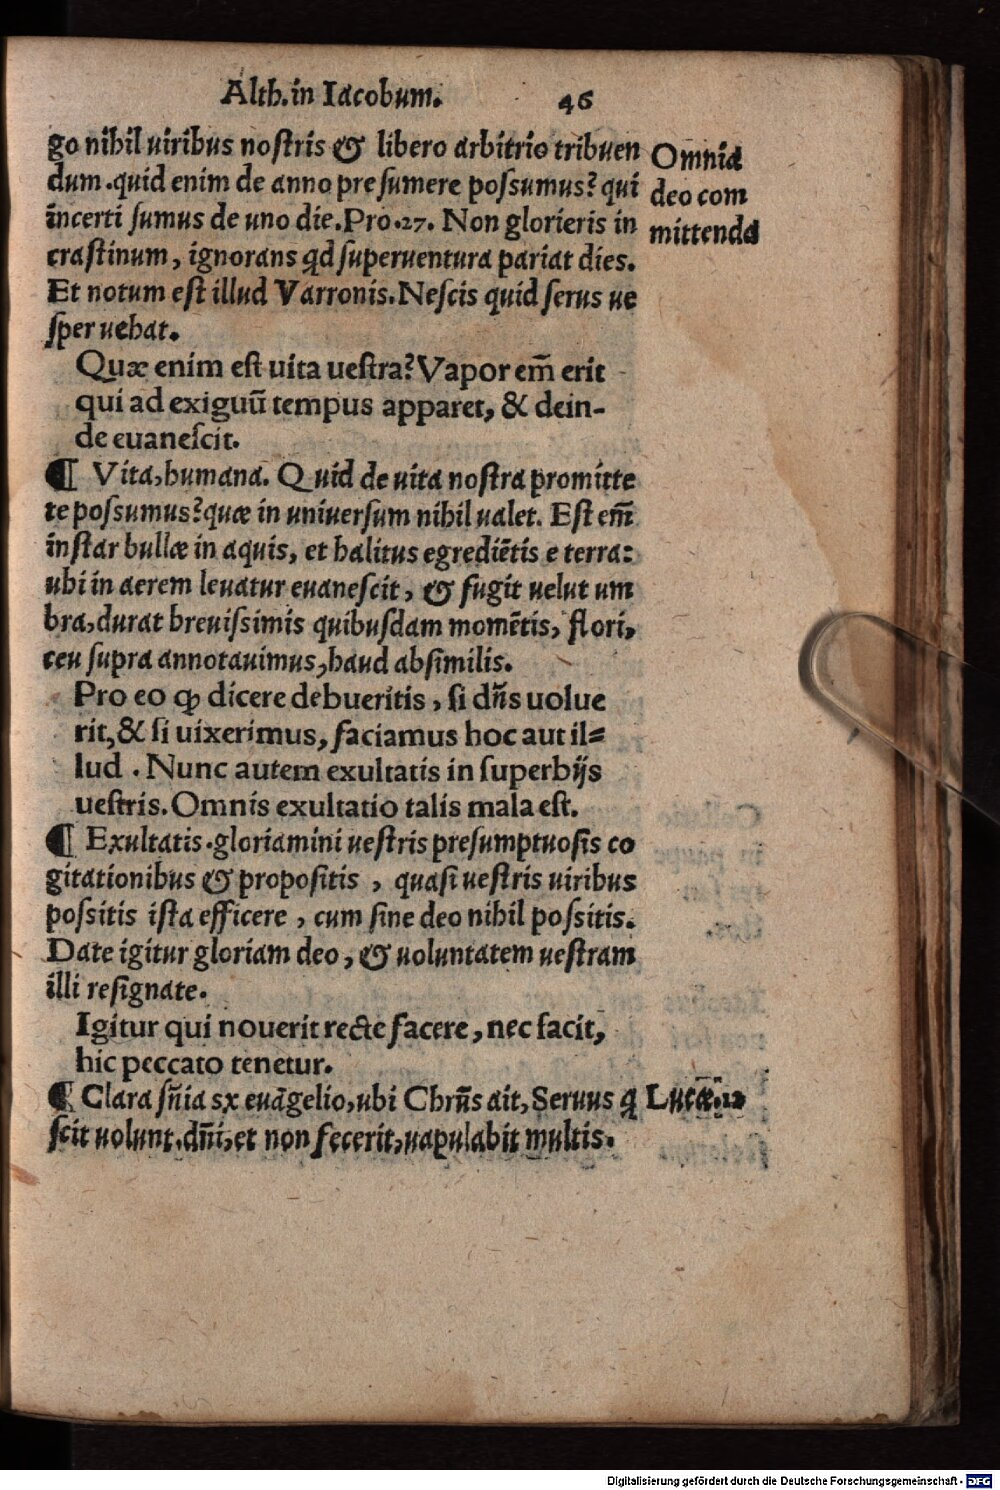 Alth. in Iacobum. 46
go nihil uiribus nostris & libero arbitrio tribuen
dum. quid enim de anno presumere possumus? qui
incerti sumus de uno die. Pro. 27. Non glorieris in
crastinum, ignorans qd superuentura pariat dies.
Et notum est illud Varronis. Nescis quid serus ue
sper uehat.
Omnia
deo com
mittenda
Quæ enim est uita uestra? Vapor em̃ erit
qui ad exiguũ tempus apparet, & dein-
de euanescit.
¶ Vita, humana. Quid de uita nostra promitte
te possumus? quæ in uniuersum nihil ualet. Est em̃
instar bullæ in aquis, et halitus egrediẽtis e terra:
ubi in aerem leuatur euanescit, & fugit uelut um
bra, durat breuissimis quibusdam momẽtis, flori,
ceu supra annotauimus, haud absimilis.
Pro eo ꝙ dicere debueritis, si dñs uolue
rit, & si uixerimus, faciamus hoc aut il=
lud. Nunc autem exultatis in superbijs
uestris. Omnis exultatio talis mala est.
¶ Exultatis. gloriamini uestris presumptuosis co
gitationibus & propositis, quasi uestris uiribus
possitis ista efficere, cum sine deo nihil possitis.
Date igitur gloriam deo, & uoluntatem uestram
illi resignate.
Igitur qui nouerit recte facere, nec facit,
hic peccato tenetur.
¶ Clara sñia sx euãgelio, ubi Chrñs ait, Seruus q
Lucæ. 12
scit uolunt. dñi, et non fecerit, uapulabit multis.
Digitalisierung gefördert durch die Deutsche Forschungsgemeinschaft - DFG